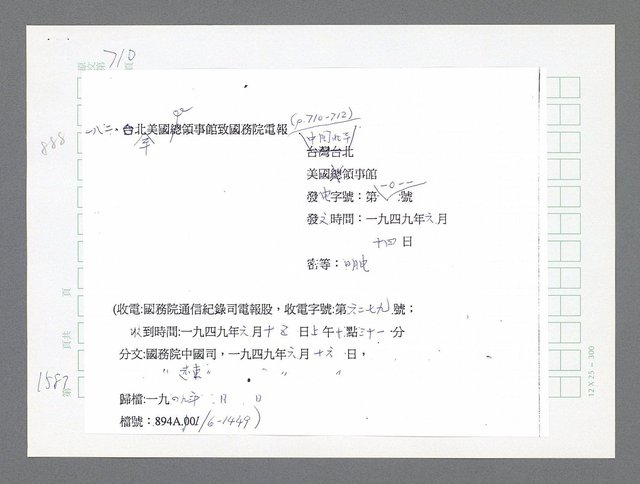 710
頁
一八二、台北美國總領事館致國務院電報 (p.710-712)
888
中國北平
台灣台北
美國總領事館
發电字號：第一〇一一號
發文時間：一九四九年六月
十四日
密等：明电
(收電:國務院通信紀錄司電報股，收電字號:第六二七九號；
收到時間:一九四九年六月十五日上午十點三十一分
分文:國務院中國司，一九四九年六月十六日，
〃 遠東 〃 〃 〃
歸檔:一九四九年 月 日
檔號：894A.00/6-1449)
頁
頁共
1587
第
12 X 25 = 300